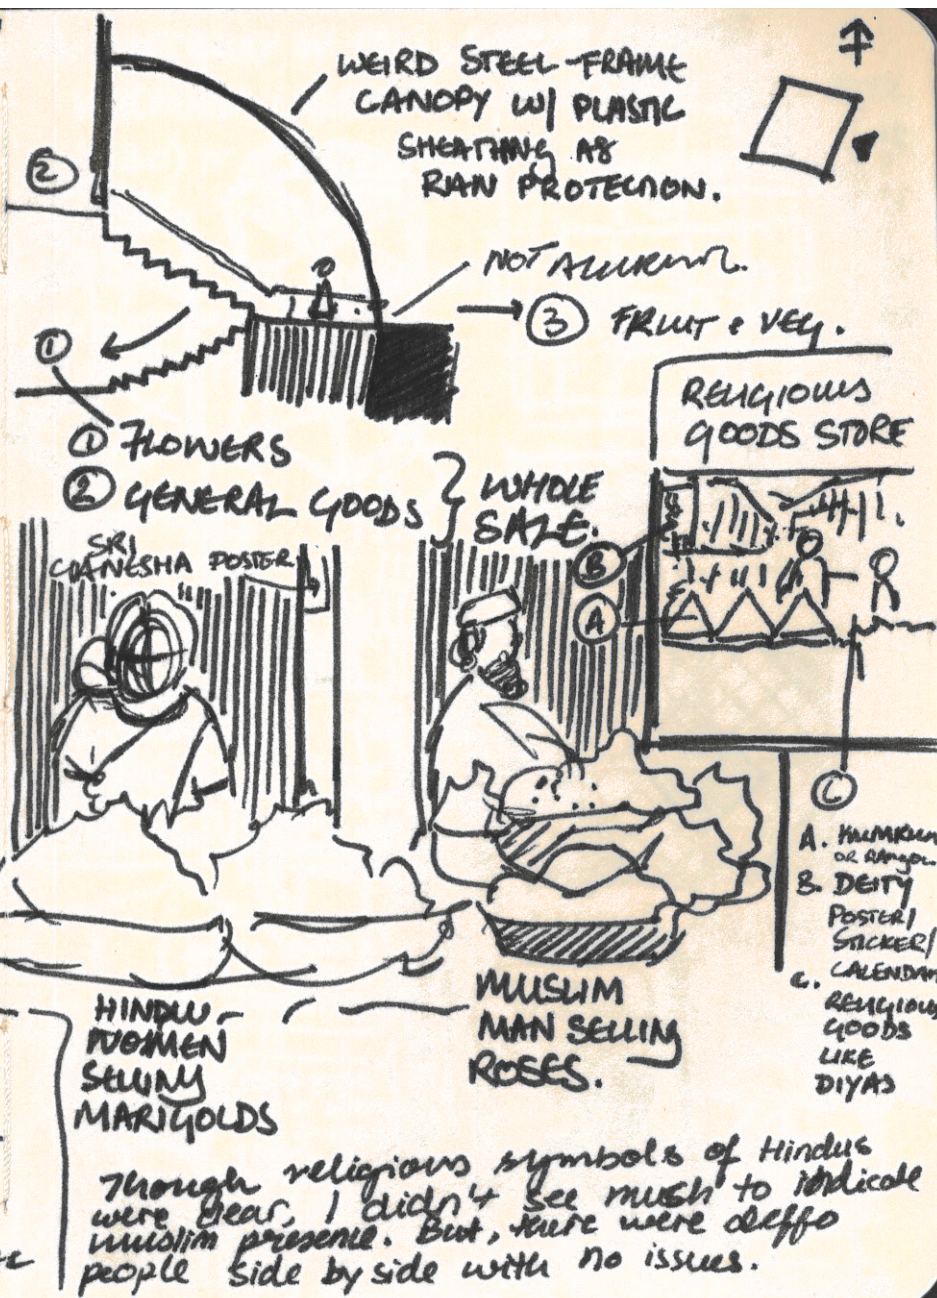 WEIRD STEEL-FRAME
CANOPY W/ PLASTIC
SHEATHING AS
RIAN PROTECTION.
2
NOT ACCURATE.
3 FRUIT & VEG.
1
1 FLOWERS
2 GENERAL GOODS } WHOLE
SALE.
RELIGIOUS
GOODS STORE
SRI
GANESHA POSTER
B
A
C
A. KUMKUM
OR RANGOL
B. DEITY
POSTER/
STICKER/
CALENDAR
C. RELIGIOUS
GOODS
LIKE
DIYAS
HINDU
WOMEN
SELLING
MARIGOLDS
MUSLIM
MAN SELLING
ROSES.
Though religious symbols of Hindus
were clear, I didn't see much to indicate
muslim presence. But, there were deffo
people side by side with no issues.